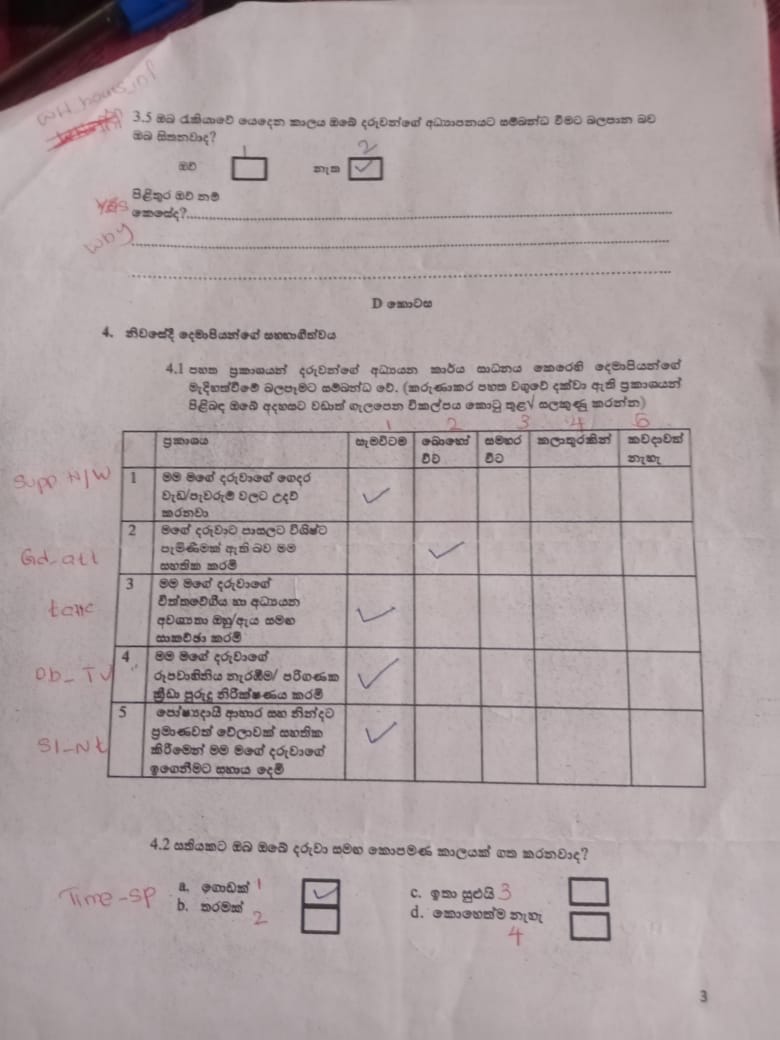 WH_hours_inf
3.5 ඔබ රැකියාවේ යෙදෙන කාලය ඔබේ දරුවන්ගේ අධ්‍යාපනයට සම්බන්ධ වීමට බලපාන බව
ඔබ සිතනවාද?
1 2
ඔව් නැත ✓
Yes පිළිතුර ඔව් නම්
කෙසේද?
why
D කොටස
4. නිවසේදී දෙමාපියන්ගේ සහභාගීත්වය
4.1 පහත ප්‍රකාශයන් දරුවන්ගේ අධ්‍යයන කාර්ය සාධනය කෙරෙහි දෙමාපියන්ගේ
මැදිහත්වීමේ බලපෑමට සම්බන්ධ වේ. (කරුණාකර පහත වගුවේ දක්වා ඇති ප්‍රකාශයන්
පිළිබඳ ඔබේ අදහසට වඩාත් ගැලපෙන විකල්පය කොටු තුළ√ සලකුණු කරන්න)
1 2 3 4 5
ප්‍රකාශය සැමවිටම බොහෝ සමහර කලාතුරකින් කවදාවත්
විට විට නැහැ
Supp H/W 1 මම මගේ දරුවාගේ ගෙදර
වැඩ/පැවරුම් වලට උදව් ✓
කරනවා
Gd_att 2 මගේ දරුවාට පාසලට විශිෂ්ට
පැමිණීමක් ඇති බව මම ✓
සහතික කරමි
3 මම මගේ දරුවාගේ
චිත්තවේගීය හා අධ්‍යයන
අවශ්‍යතා ඔහු/ඇය සමඟ ✓
සාකච්ඡා කරමි
Ob_TV 4 මම මගේ දරුවාගේ
රූපවාහිනිය නැරඹීම/ පරිගණක ✓
ක්‍රීඩා පුරුදු නිරීක්ෂණය කරමි
Sl_Nt 5 පෝෂ්‍යදායී ආහාර සහ නින්දට
ප්‍රමාණවත් වේලාවක් සහතික ✓
කිරීමෙන් මම මගේ දරුවාගේ
ඉගෙනීමට සහාය දෙමි
4.2 සතියකට ඔබ ඔබේ දරුවා සමඟ කොපමණ කාලයක් ගත කරනවාද?
Time_sp a. ගොඩක් 1 ✓ c. ඉතා සුළුයි 3
b. තරමක් 2 d. කොහෙත්ම නැහැ 4
3